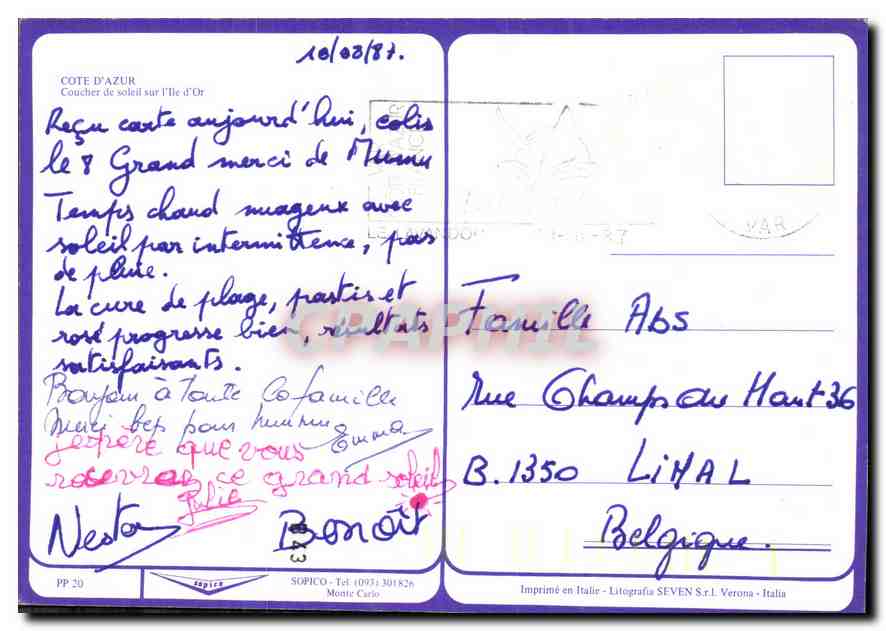 10/08/87.
COTE D'AZUR
Coucher de soleil sur l'Ile d'Or
Reçu carte aujourd'hui, colis
le 8 Grand merci de Mumu
Temps chaud nuageux avec
soleil par intermittence, pas
de pluie.
La cure de plage, pastis et
rosé progresse bien, résultats
satisfaisants.
Bonjour à toute la famille
Merci bcp pour mumu
Emma
j'espère que vous
ce grand soleil
Julie
Nestor
Benoît
PP 20
sopico
SOPICO - Tel. (093) 301826
Monte Carlo
LE LAVANDOU
-87
VAR
Famille Abs
rue Champs du Haut 36
B. 1350 LIMAL
Belgique.
Imprimé en Italie - Litografia SEVEN S.r.l. Verona - Italia
CPAPHIL